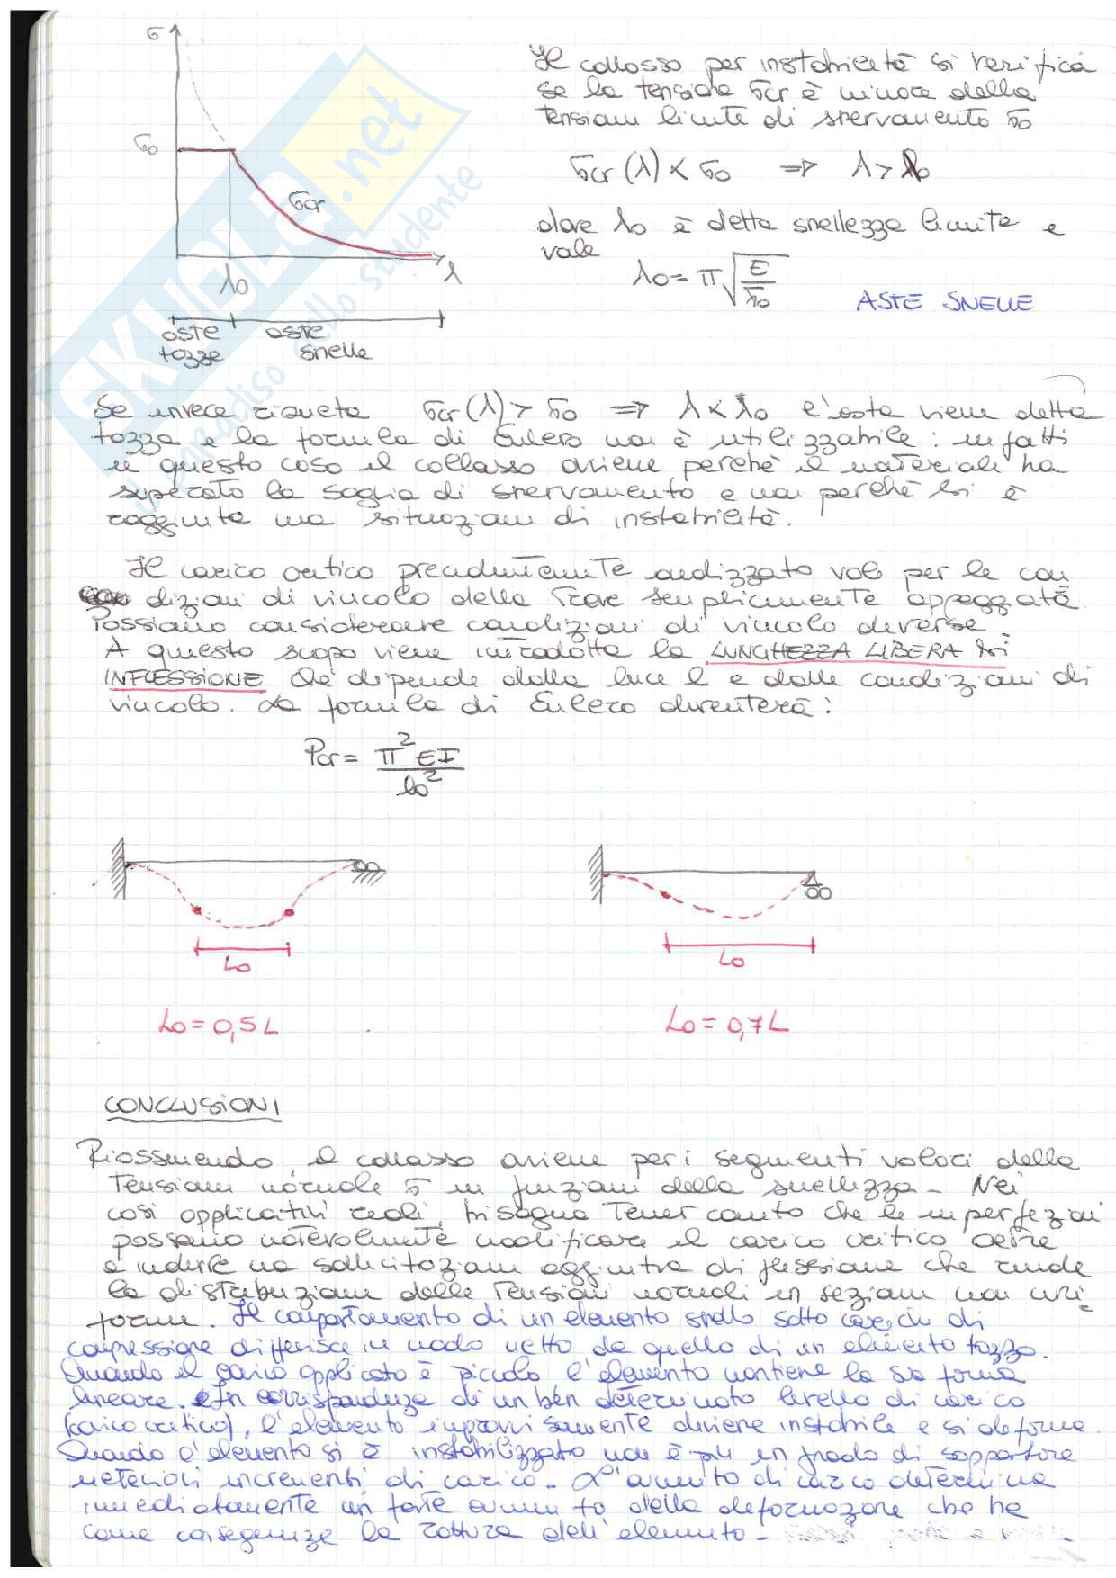 σ
σ0
σcr
λ0
λ
aste tozze
aste snelle
SKUOLA.net
il paradiso dello studente
Il collasso per instabilità si verifica
se la tensione σcr è minore della
tensione limite di snervamento σ0
σcr (λ) < σ0 ⇒ λ > λ0
dove λ0 è detta snellezza limite e
vale
λ0 = π √(E/σ0)
ASTE SNELLE
Se invece risulta σcr (λ) > σ0 ⇒ λ < λ0 l'asta viene detta
tozza e la formula di Eulero non è utilizzabile: infatti
in questo caso il collasso avviene perché il materiale ha
superato la soglia di snervamento e non perché si è
raggiunta una situazione di instabilità.
Il carico critico precedentemente analizzato vale per le con
dizioni di vincolo della trave semplicemente appoggiata.
Possiamo considerare condizioni di vincolo diverse.
A questo scopo viene introdotta la LUNGHEZZA LIBERA di
INFLESSIONE che dipende dalla luce l e dalle condizioni di
vincolo. La formula di Eulero diventerà:
Pcr = π² EI / l0²
L0
L0
L0 = 0,5 L
L0 = 0,7 L
CONCLUSIONI
Riassumendo, il collasso avviene per i seguenti valori della
tensione normale σ in funzione della snellezza. Nei
casi applicativi reali, bisogna tener conto che le imperfezioni
possono notevolmente modificare il carico critico oltre
a indurre una sollecitazione aggiuntiva di flessione che rende
la distribuzione delle tensioni normali in sezione non uni
forme. Il comportamento di un elemento snello sotto carichi di
compressione differisce in modo netto da quello di un elemento tozzo.
Quando il carico applicato è piccolo l'elemento mantiene la sua forma
lineare. In corrispondenza di un ben determinato livello di carico
(carico critico), l'elemento improvvisamente diviene instabile e si deforma.
Quando l'elemento si è instabilizzato non è più in grado di sopportare
ulteriori incrementi di carico. L'aumento di carico determina
immediatamente un forte aumento della deformazione che ha
come conseguenza la rottura dell'elemento.